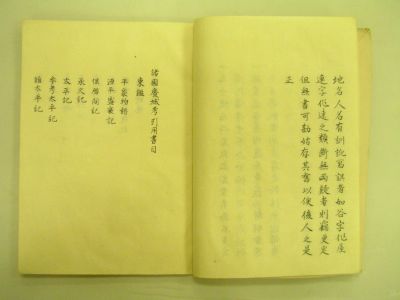 地名人名有訓訛寫誤者如谷字作屋
連字作達之類斷無両疑者則竊更定
但無書可勘姑存其舊以俟後人之是
正
諸國廢城考引用書目
東鑑
平家物語
源平盛衰記
保曆間記
承久記
太平記
參考太平記
續太平記